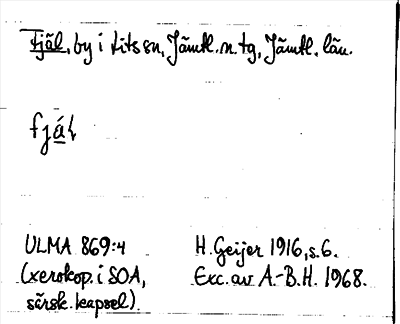 Fjäl, by i Lits sn, Jämtl. n. tg, Jämtl. län.
fjá̲ɫ
ULMA 869:4
(xerokop. i SOA,
särsk. kapsel).
H. Geijer 1916, s. 6.
Exc. av A.-B. H. 1968.